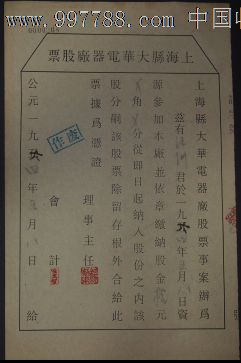 www.997788.com 中国收
上海縣大華電器廠股票
上海縣大華電器廠股票事案辦爲
茲有 君於一九 年 月 日資
源參加本廠並依章繳納股金 元
角 分從即日起納入股份之內該
股分嗣該股票除留存根外合給此
票據爲憑證
作廢
理事主任
會計
公元一九 四年 月八日給